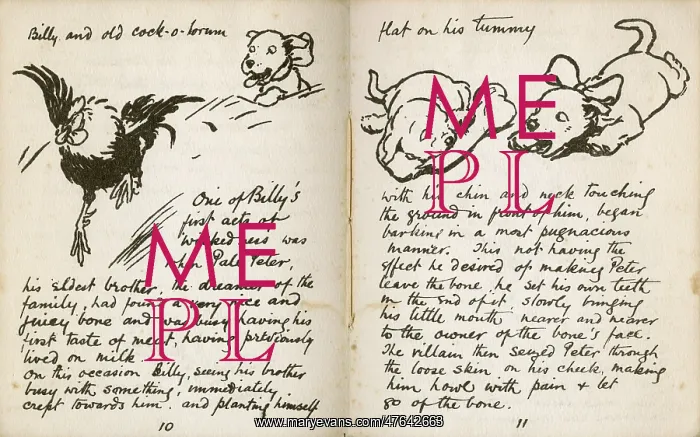 Billy and old cock-o-lorum
One of Billy's
first acts of
wickedness was
when Pale Peter,
his eldest brother, the dreamer of the
family, had found a very nice and
juicy bone and was busy having his
first taste of meat, having previously
lived on milk
On this occasion Billy, seeing his brother
busy with something, immediately
crept towards him. and planting himself
10
flat on his tummy
with his chin and neck touching
the ground in front of him, began
barking in a most pugnacious
manner. This not having the
effect he desired of making Peter
leave the bone, he set his own teeth
in the end of it slowly bringing
his little mouth nearer and nearer
to the owner of the bone's face.
The villain then seized Peter through
the loose skin on his cheek, making
him howl with pain & let
go of the bone.
11
ME
PL
ME
PL
www.maryevans.com/47642669